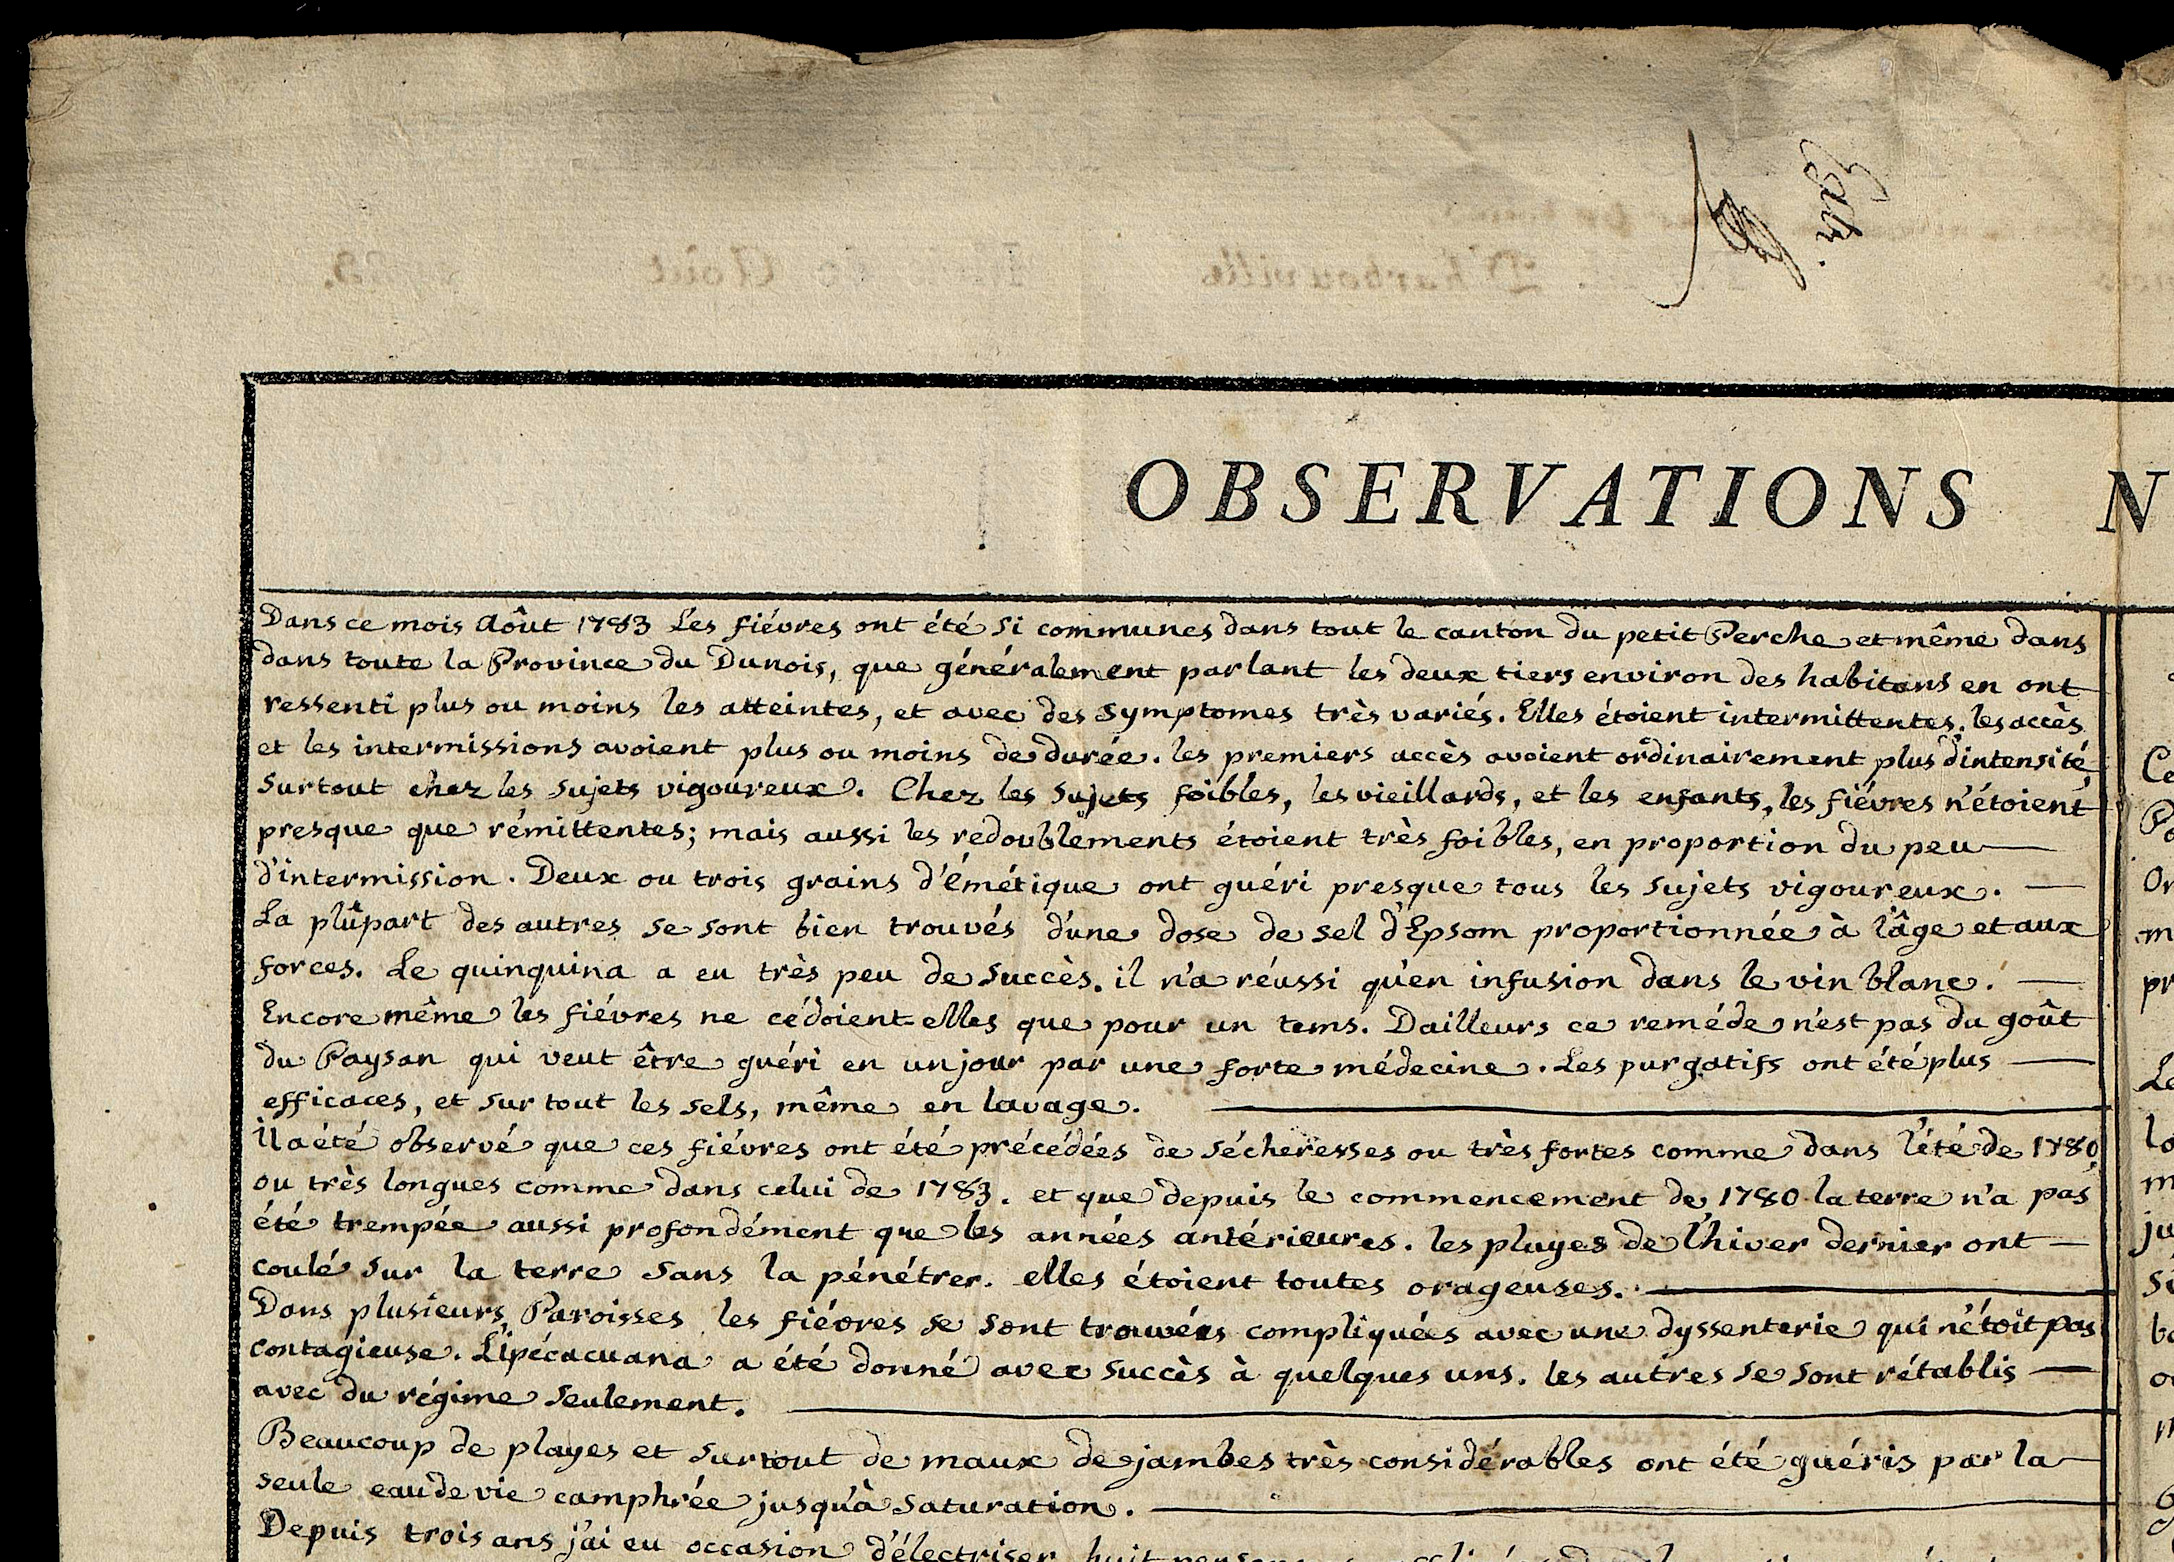 OBSERVATIONS N
Dans ce mois Août 1783 Les fiévres ont été si communes dans tout le canton du petit Perche et même dans
dans toute la Province du Dunois, que généralement parlant les deux tiers environ des habitans en ont
ressenti plus ou moins les atteintes, et avec des symptomes très variés. Elles étoient intermittentes. les accès
et les intermissions avoient plus ou moins de durée. les premiers accès avoient ordinairement plus d'intensité,
surtout chez les sujets vigoureux. Chez les sujets foibles, les vieillards, et les enfants, les fiévres n'étoient
presque que rémittentes; mais aussi les redoublements étoient très foibles, en proportion du peu
d'intermission. Deux ou trois grains d'émétique ont guéri presque tous les sujets vigoureux.
La plûpart des autres se sont bien trouvés d'une dose de sel d'Epsom proportionnée à l'âge et aux
forces. Le quinquina a eu très peu de succès. il n'a réussi qu'en infusion dans le vin blanc.
Encore même les fiévres ne cédoient-elles que pour un tems. Dailleurs ce reméde n'est pas du goût
du Paysan qui veut être guéri en un jour par une forte médecine. Les purgatifs ont été plus
efficaces, et sur tout les sels, même en lavage.
il a été observé que ces fiévres ont été précédées de sécheresses ou très fortes comme dans l'été de 1780,
ou très longues comme dans celui de 1783. et que depuis le commencement de 1780 la terre n'a pas
été trempée aussi profondément que les années antérieures. les pluyes de l'hiver dernier ont
coulé sur la terre sans la pénétrer. elles étoient toutes orageuses.
Dans plusieurs Paroisses les fiévres se sont trouvées compliquées avec une dyssenterie qui n'étoit pas
contagieuse. L'ipécacuana a été donné avec succès à quelques uns. les autres se sont rétablis
avec du régime seulement.
Beaucoup de playes et surtout de maux de jambes très considérables ont été guéris par la
seule eau de vie camphrée jusqu'à saturation.
Depuis trois ans j'ai eu occasion d'électriser huit